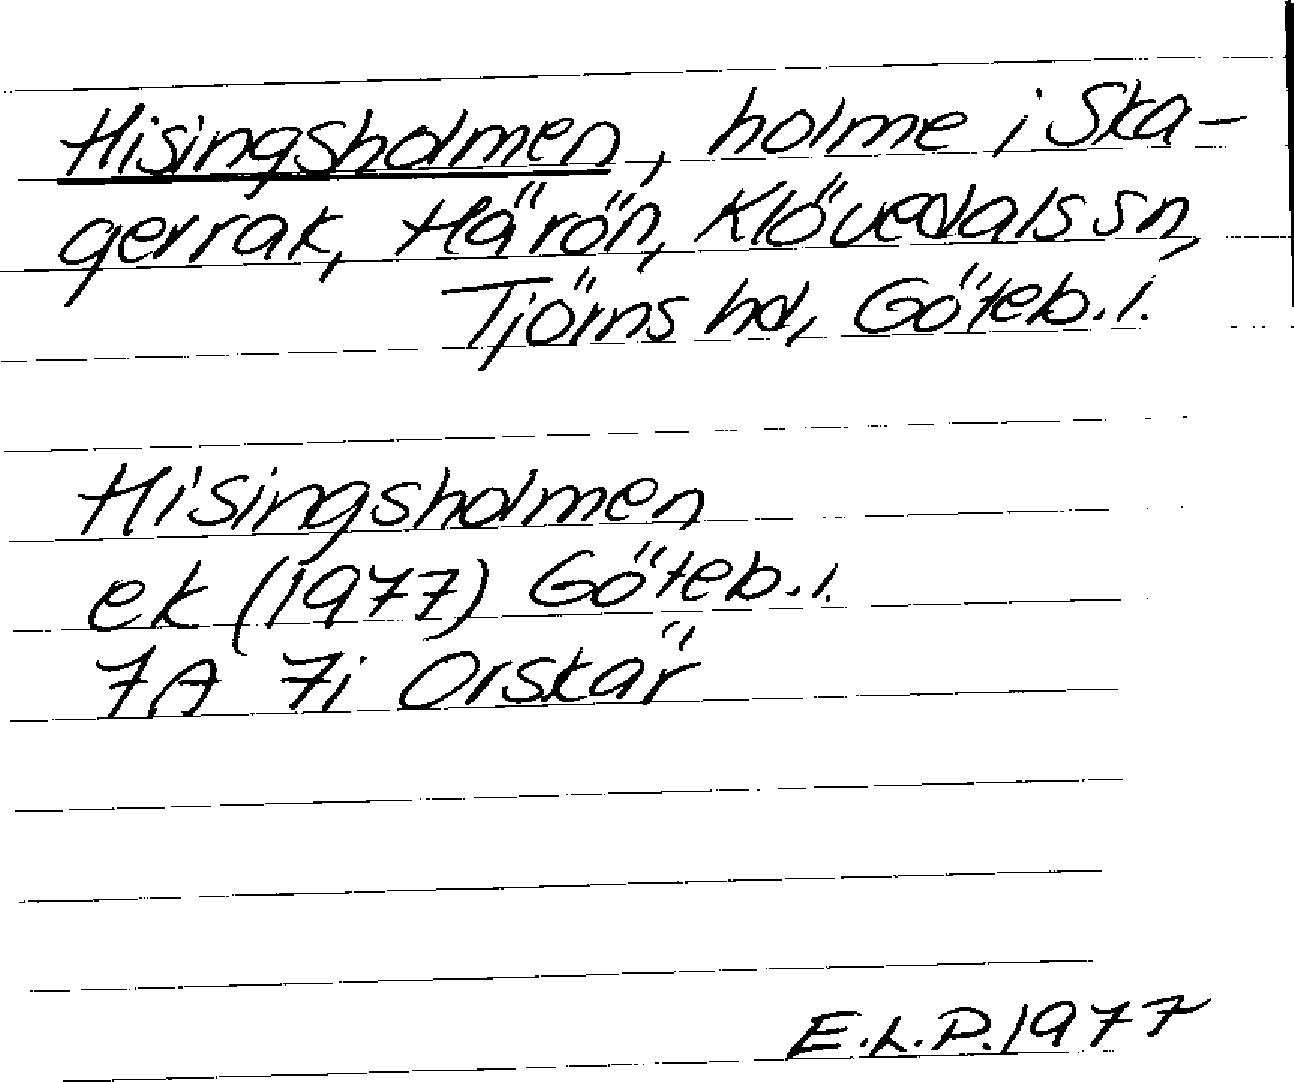 Hisingsholmen, holme i Ska-
gerrak, Härön, Klövedals sn,
Tjörns hd, Göteb. l.
Hisingsholmen
ek (1977) Göteb. l.
7A 7i Orskär
E.L.P. 1977